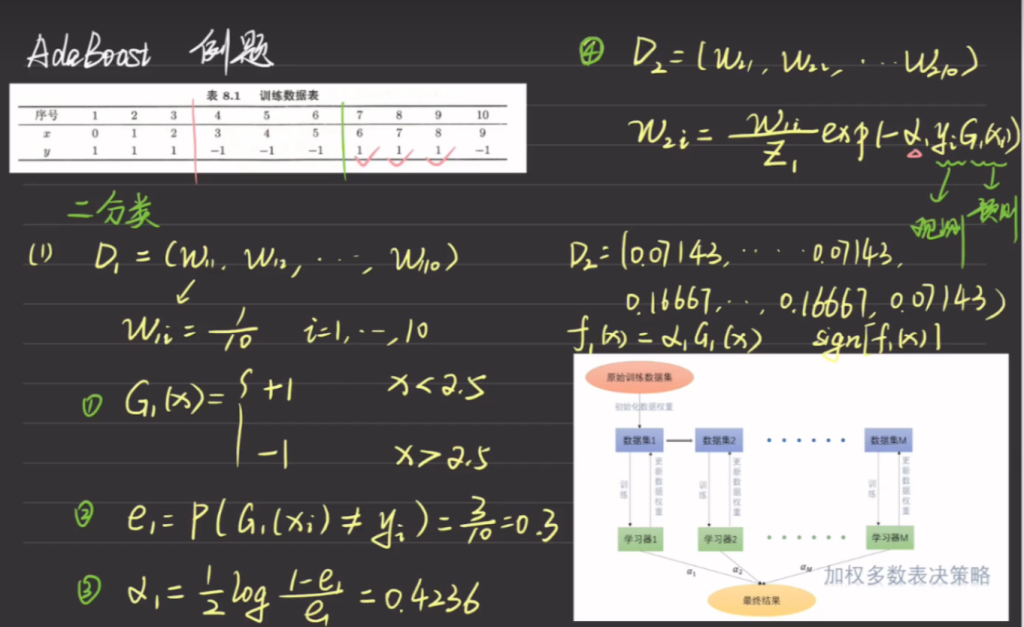 AdaBoost 例题
表 8.1 训练数据表
序号 1 2 3 4 5 6 7 8 9 10
x 0 1 2 3 4 5 6 7 8 9
y 1 1 1 −1 −1 −1 1 1 1 −1
二分类
(1) D₁ = (W₁₁, W₁₂, ⋯, W₁₁₀)
W₁ᵢ = 1/10 i=1,⋯,10
① G₁(x) = { +1 x<2.5
−1 x>2.5
② e₁ = P(G₁(xᵢ) ≠ yᵢ) = 3/10 = 0.3
③ α₁ = 1/2 log (1−e₁)/e₁ = 0.4236
④ D₂ = (W₂₁, W₂₂, ⋯ W₂₁₀)
W₂ᵢ = W₁ᵢ/Z₁ exp(−α₁yᵢG₁(xᵢ))
观测 预测
D₂ = (0.07143, ⋯ 0.07143,
0.16667, ⋯, 0.16667, 0.07143)
f₁(x) = α₁G₁(x) sign[f₁(x)]
原始训练数据集
初始化数据权重
数据集1 数据集2 数据集M
训练 更新数据权重 训练 更新数据权重 训练 更新数据权重
学习器1 学习器2 学习器M
α₁ α₂ αM 加权多数表决策略
最终结果